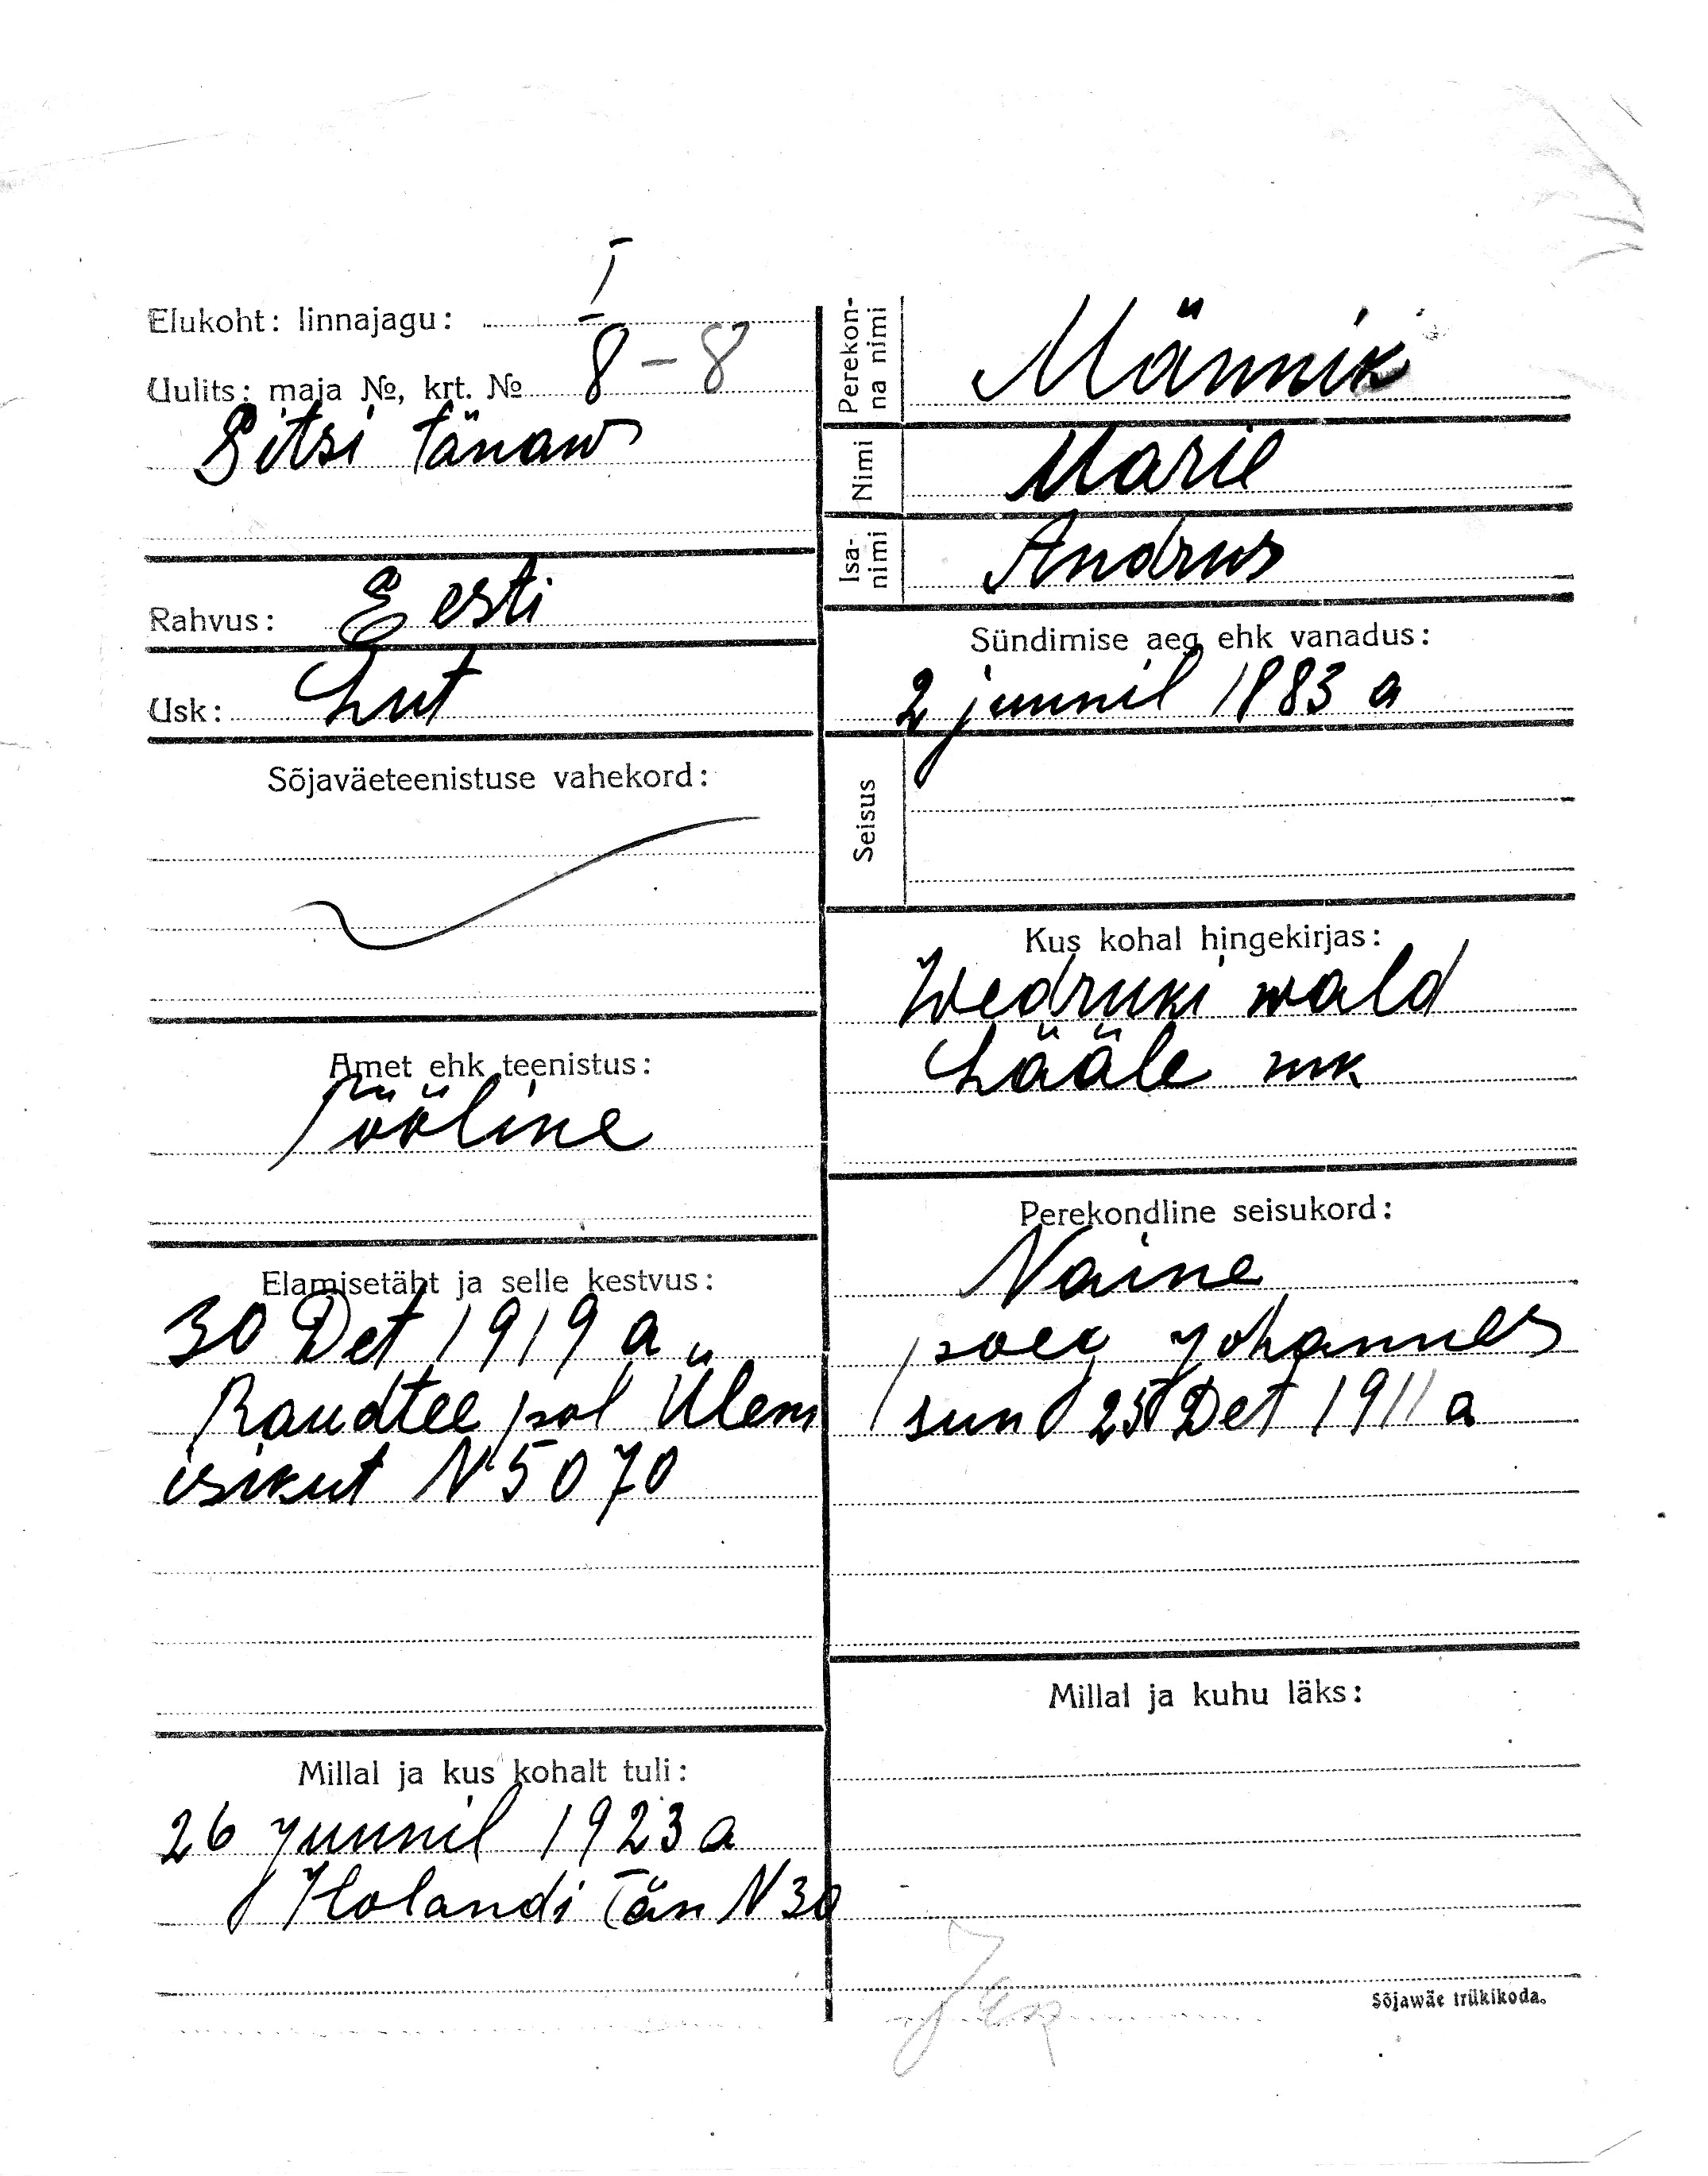 Elukoht: linnajagu: I
Uulits: maja №, krt. № 8 - 8
Sitsi tänaw
Rahvus: Eesti
Usk: Lut
Sõjaväeteenistuse vahekord:
Amet ehk teenistus:
Tööline
Elamisetäht ja selle kestvus:
30 Det 1919 a
Raudtee pol Ülem
isikut N 5070
Millal ja kus kohalt tuli:
26 juunil 1923 a
Holandi tän N 30
Perekon-
na nimi
Männik
Nimi
Marie
Isa-
nimi
Andrus
Sündimise aeg ehk vanadus:
2 juunil 1883 a
Seisus
Kus kohal hingekirjas:
Wedruki wald
Lääle mk
Perekondline seisukord:
Naine
poeg Johannes
sund 25 Det 1911 a
Millal ja kuhu läks:
Sõjawäe trükikoda.